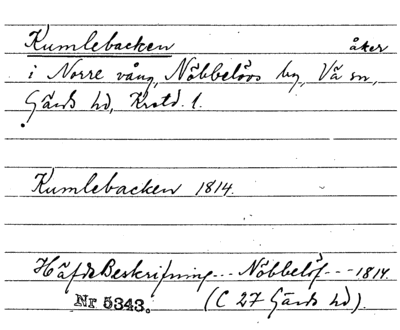 Kumlebacken åker
i Norre vång, Nöbbelövs by, Vä sn,
Gärds hd, Krstd. l.
Kumlebacken 1814.
Häfde Beskrifning... Nöbbelöf--- 1814.
Nr 5343. (C 27 Gärds hd).